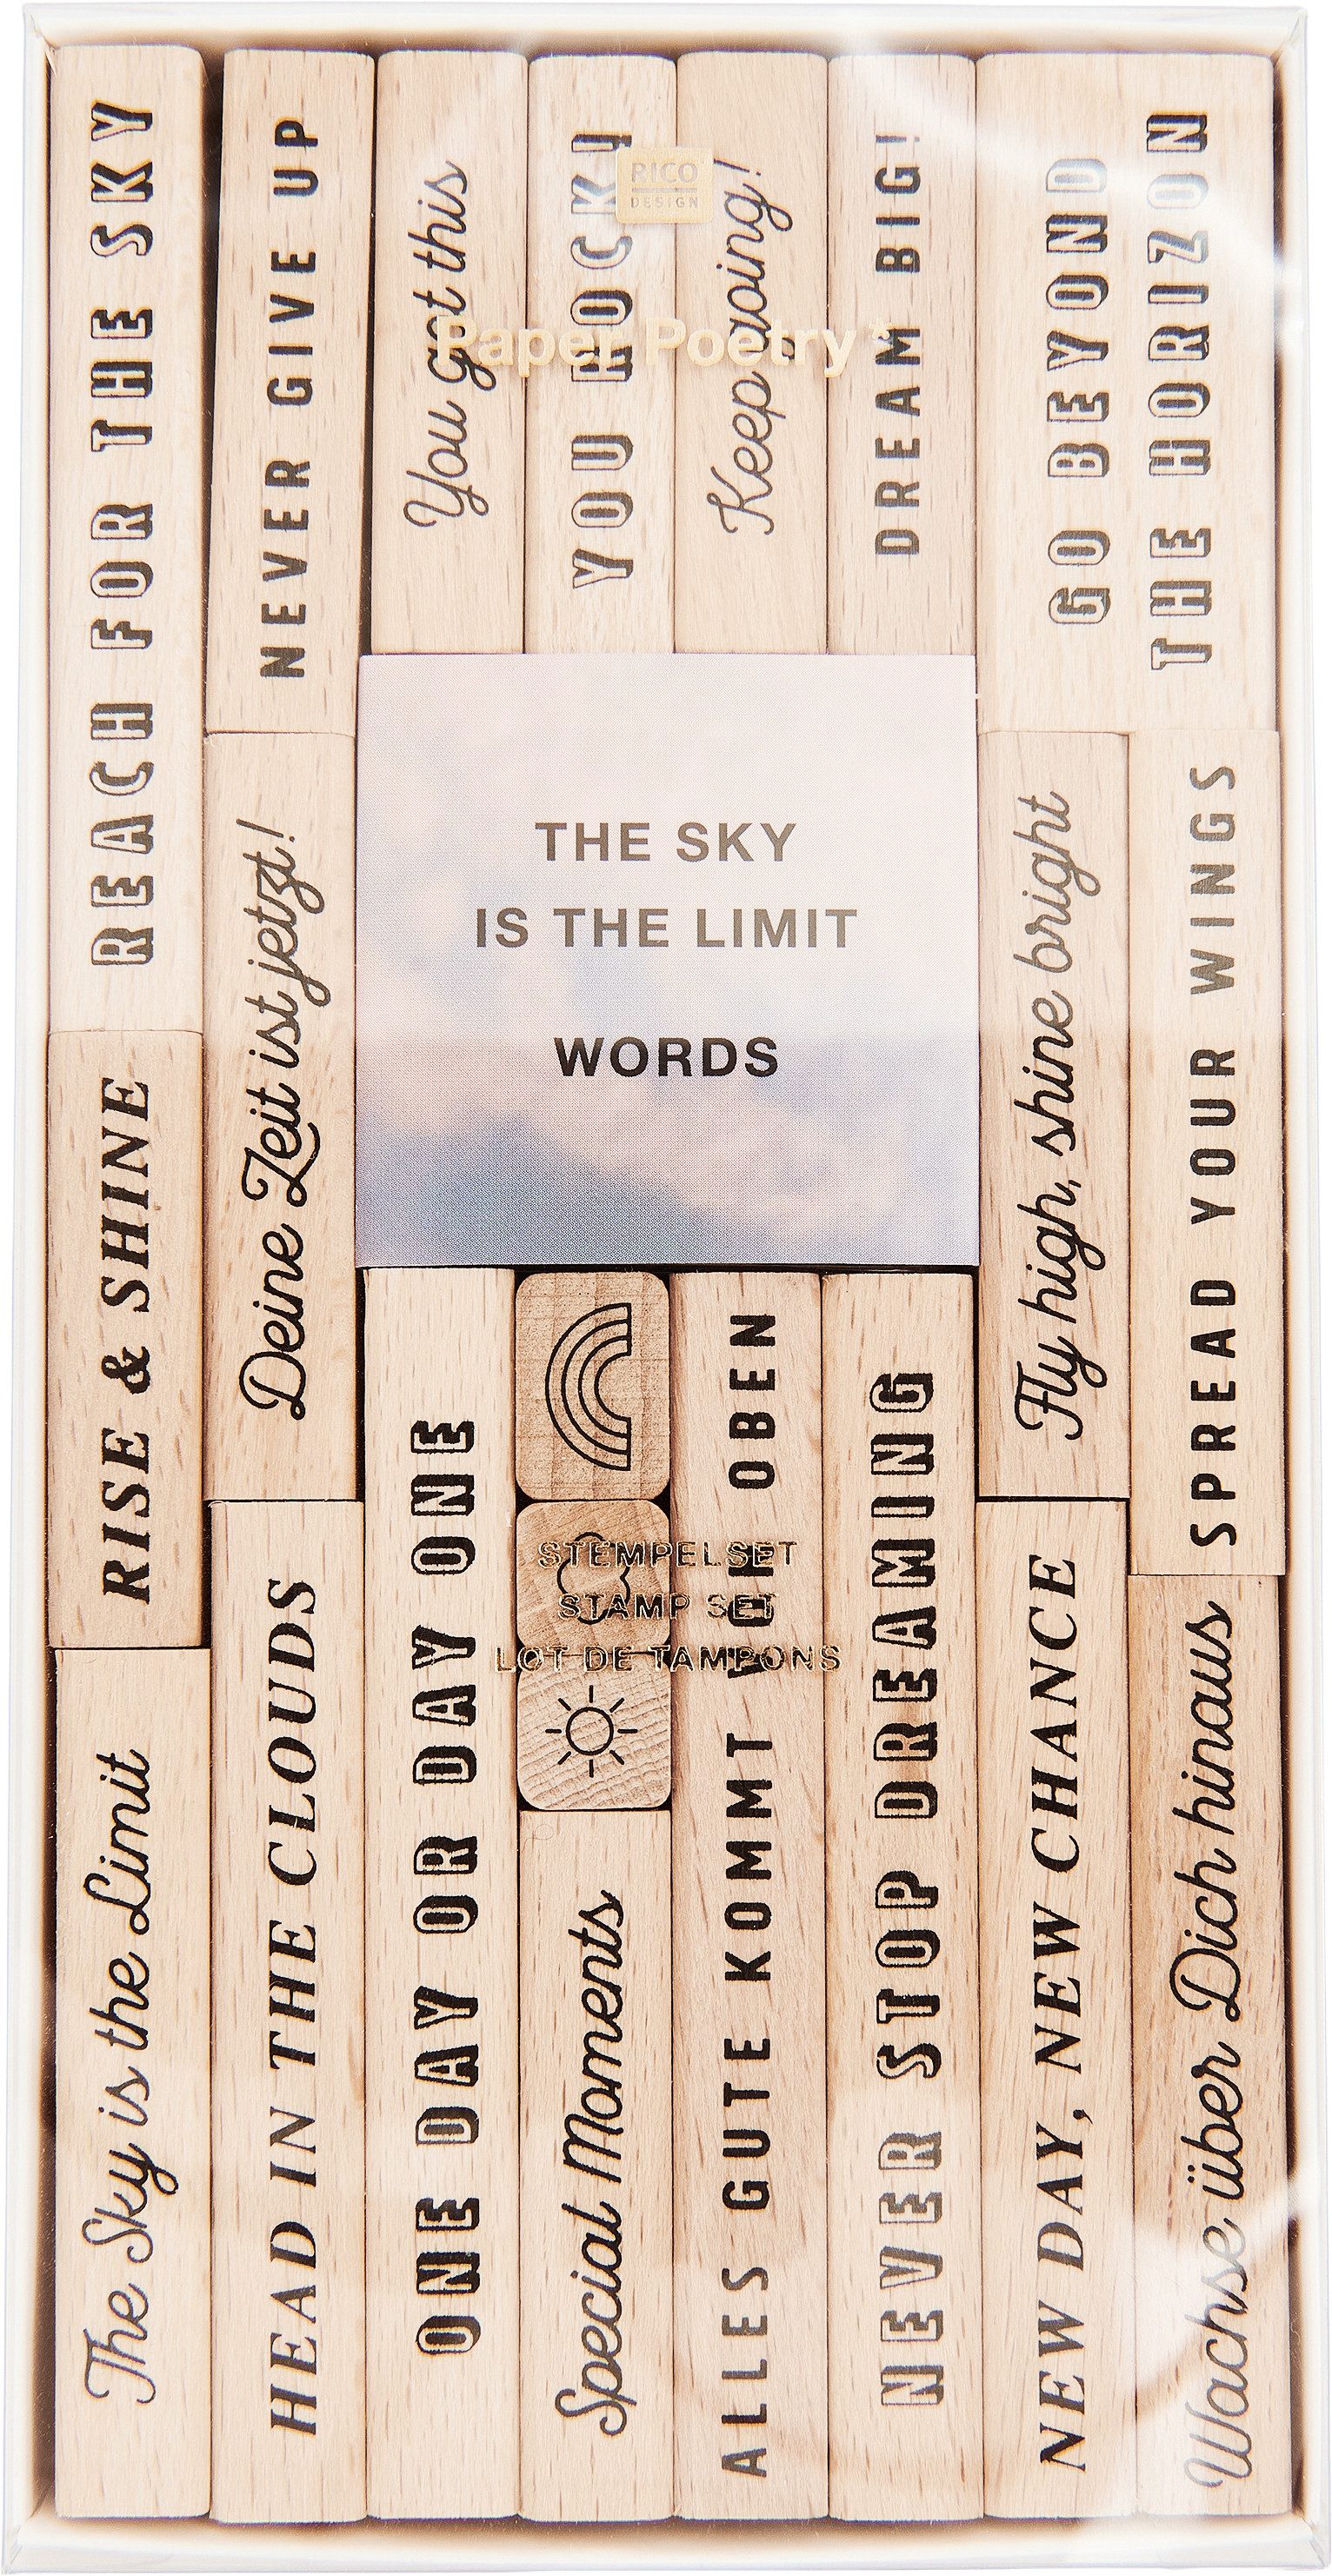 RICO
DESIGN
Paper Poetry
REACH FOR THE SKY
NEVER GIVE UP
You got this
YOU ROCK!
Keep going!
DREAM BIG!
GO BEYOND
THE HORIZON
THE SKY
IS THE LIMIT
WORDS
RISE & SHINE
Deine Zeit ist jetzt!
Fly high, shine bright
SPREAD YOUR WINGS
STEMPELSET
STAMP SET
LOT DE TAMPONS
The Sky is the Limit
HEAD IN THE CLOUDS
ONE DAY OR DAY ONE
Special Moments
ALLES GUTE KOMMT VON OBEN
NEVER STOP DREAMING
NEW DAY, NEW CHANCE
Wachse über Dich hinaus